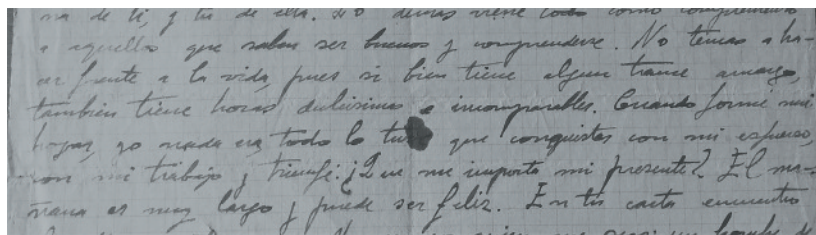 na de ti, y tu de ella. Lo demas viene todo como complemento
a aquellos que saben ser buenos y comprenderse. No temas a ha-
cer frente a la vida, pues si bien tiene algun trance amargo,
tambien tiene horas dulcisimas e incomparables. Cuando formé mi
hogar, yo nada era, todo lo tuve que conquistar con mi esfuerzo,
con mi trabajo y triunfé. ¿Que me importa mi presente? El ma-
ñana es muy largo y puede ser feliz. En tu carta encuentro